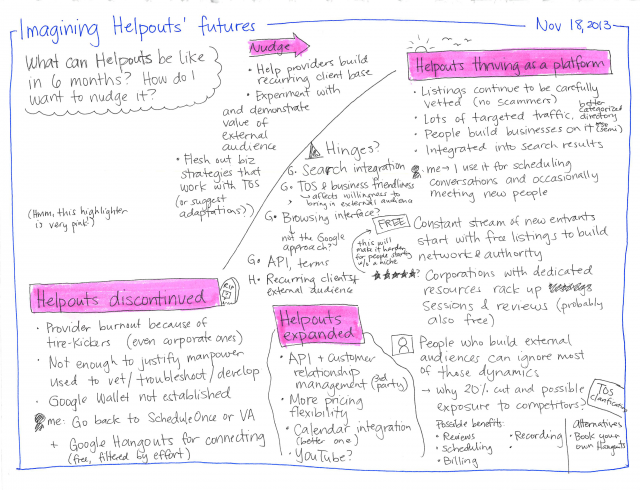 Imagining Helpouts' futures
Nov 18, 2013
What can Helpouts be like
in 6 months? How do I
want to nudge it?
Nudge
• Help providers build
recurring client base
• Experiment with
and demonstrate
value of
external
audience
• Flesh out biz
strategies that
work with TOS
(or suggest
adaptations?)
(Hmm, this highlighter
is very pink!)
Hinges?
G. Search integration
G. TOS & business friendliness
↳ affects willingness to
bring in external audience
G. Browsing interface?
↳ not the Google
approach?
G. API, terms
H. Recurring clients &
external audience
Helpouts thriving as a platform
• Listings continue to be carefully
vetted (no scammers)
• Lots of targeted traffic,
better
categorized
directory
also
• People build businesses on it (semi)
• Integrated into search results
me → I use it for scheduling
conversations and occasionally
meeting new people
FREE Constant stream of new entrants
start with free listings to build
network & authority
this will
make it harder
for people starting
w/o a niche
★★★★★? Corporations with dedicated
resources rack up
sessions & reviews (probably
also free)
People who build external
audiences can ignore most
of those dynamics
→ why 20% cut and possible
exposure to competitors?
TOS
clarification
Possible benefits:
• Reviews
• Scheduling
• Billing
• Recording
Alternatives
• Book your
own Hangouts
Helpouts discontinued
RIP
• Provider burnout because of
tire-kickers (even corporate ones)
• Not enough to justify manpower
used to vet / troubleshoot / develop
• Google Wallet not established
me: Go back to ScheduleOnce or VA
+ Google Hangouts for connecting
(free, filtered by effort)
Helpouts
expanded
• API + customer
relationship
management (3rd
party)
• More pricing
flexibility
• Calendar integration
(better one)
• YouTube?